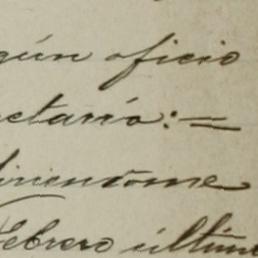 gún oficio
etaría: =
irientome
Febrero últim